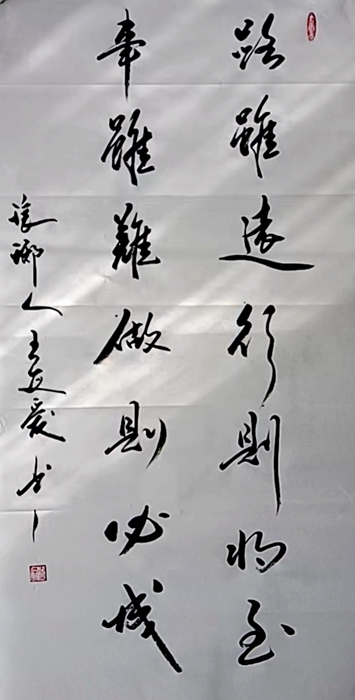 路雖遠行則將至
事雖難做則必成
琅琊人王友愛书